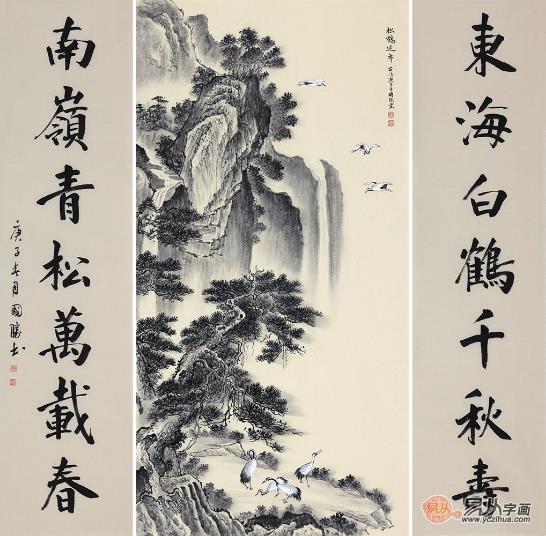 東海白鶴千秋壽
松鶴延年
南嶺青松萬載春
庚子春月國勝书
易从字画
www.yczihua.com